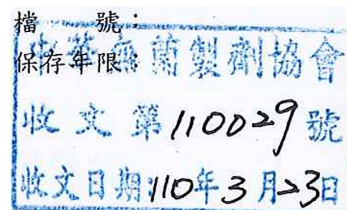 檔　　號：
保存年限：
中華無菌製劑協會
收文第110029號
收文日期:110年3月23日